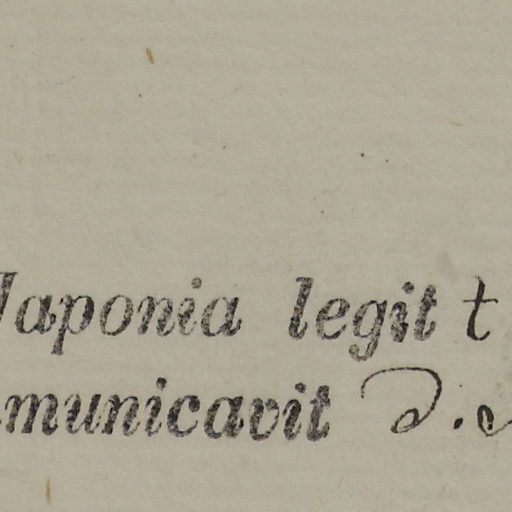 Japonia legit t
municavit d.